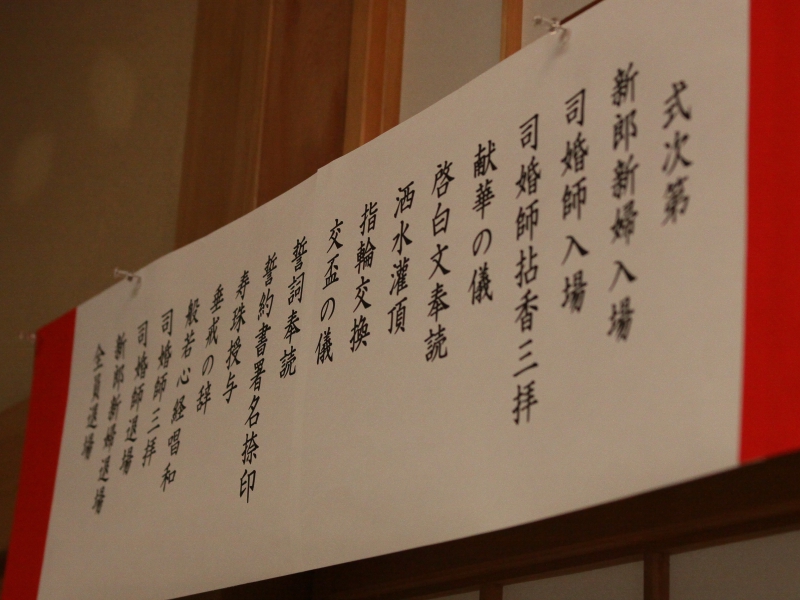 式次第
新郎新婦入場
司婚師入場
司婚師拈香三拝
献華の儀
啓白文奉読
洒水灌頂
指輪交換
交盃の儀
誓詞奉読
誓約書署名捺印
寿珠授与
垂戒の辞
般若心経唱和
司婚師三拝
司婚師退場
新郎新婦退場
全員退場